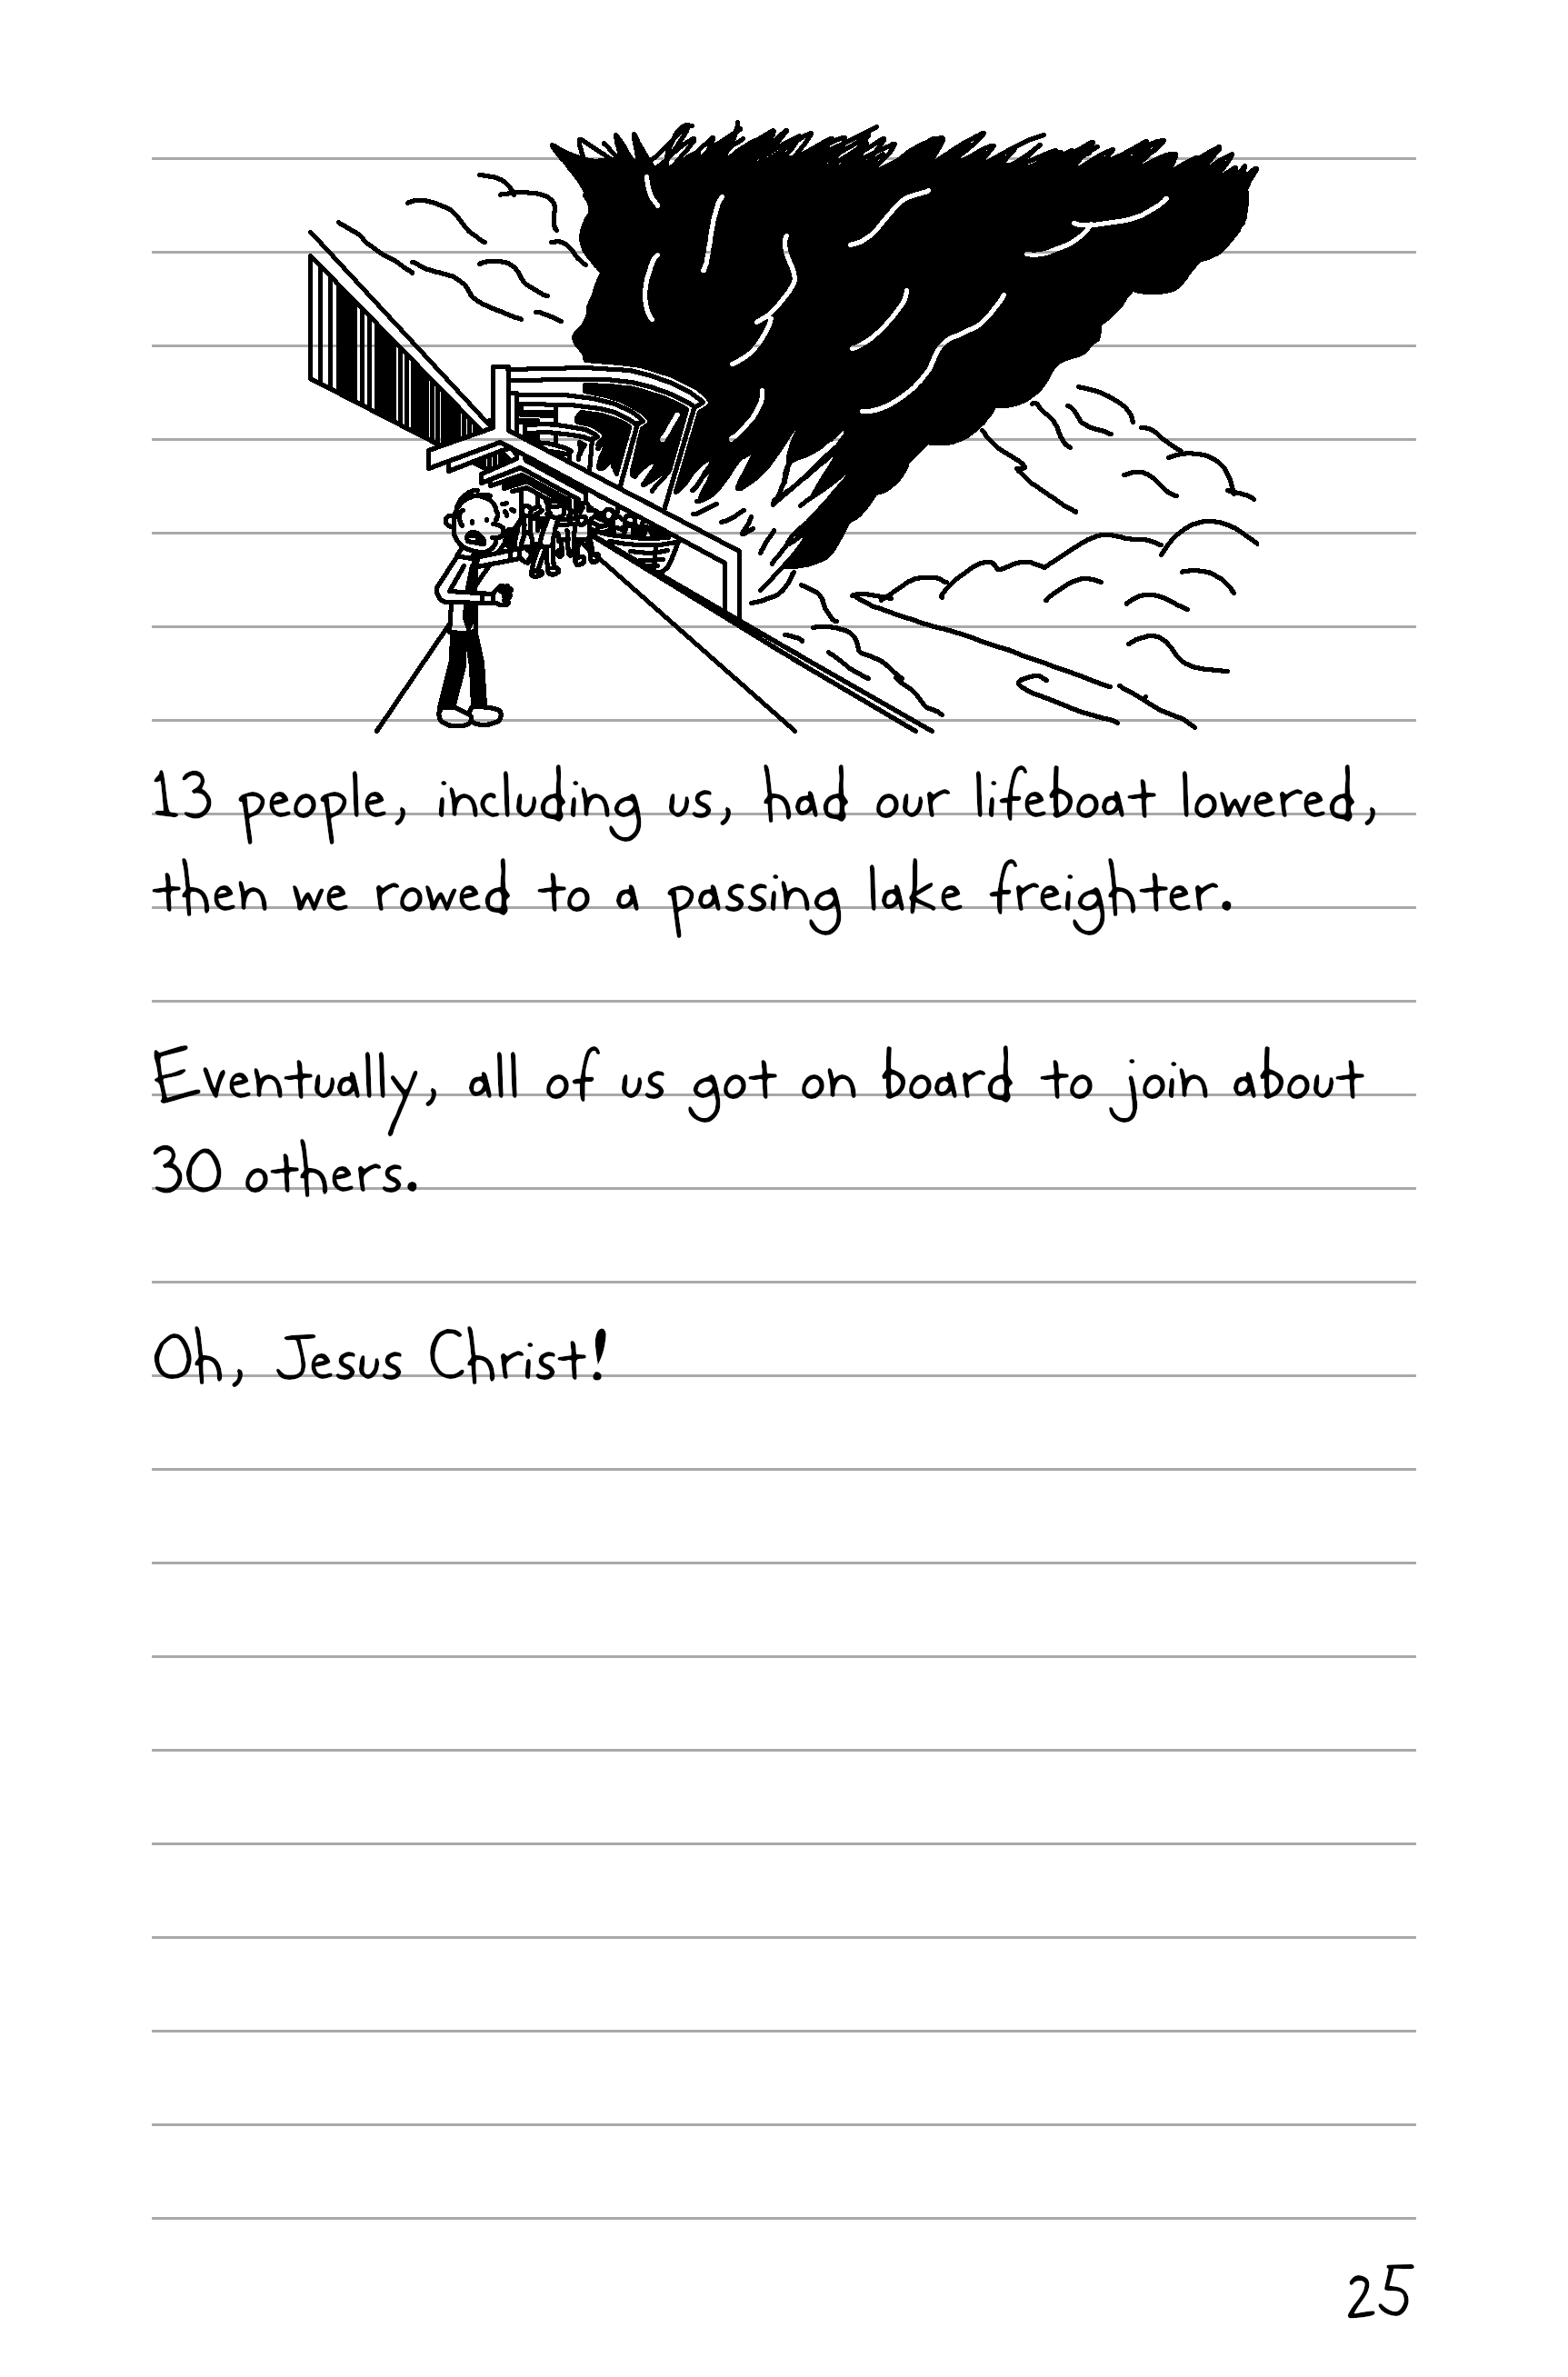 13 people, including us, had our lifeboat lowered,
then we rowed to a passing lake freighter.
Eventually, all of us got on board to join about
30 others.
Oh, Jesus Christ!
25